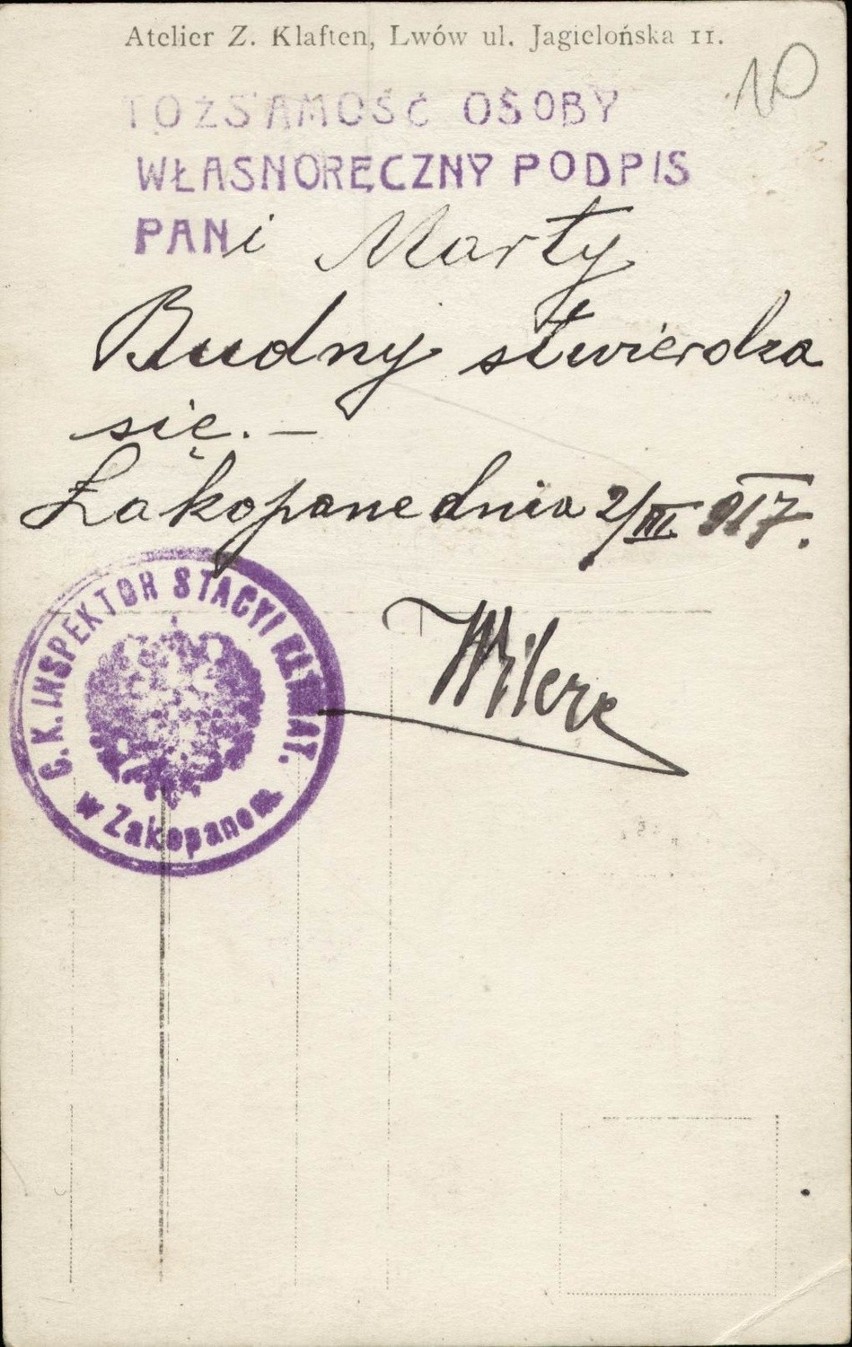 Atelier Z. Klaften, Lwów ul. Jagielońska 11.
10
TOŻSAMOŚĆ OSOBY
WŁASNORĘCZNY PODPIS
PANi Marty
Budny stwierdza
się. —
Zakopane dnia 2/III. 917.
C. K. INSPEKTOR STACYI KLIMAT.
w Zakopanem